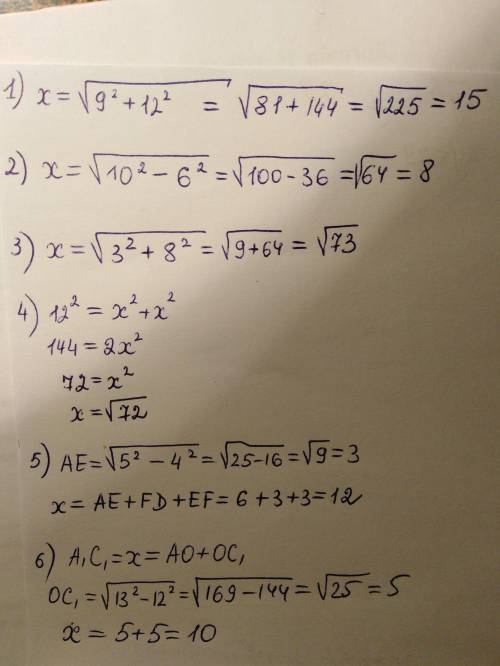 1) x = √9² + 12² = √81 + 144 = √225 = 15
2) x = √10² - 6² = √100 - 36 = √64 = 8
3) x = √3² + 8² = √9 + 64 = √73
4) 12² = x² + x²
144 = 2x²
72 = x²
x = √72
5) AE = √5² - 4² = √25 - 16 = √9 = 3
x = AE + FD + EF = 6 + 3 + 3 = 12
6) A₁C₁ = x = AO + OC₁
OC₁ = √13² - 12² = √169 - 144 = √25 = 5
x = 5 + 5 = 10